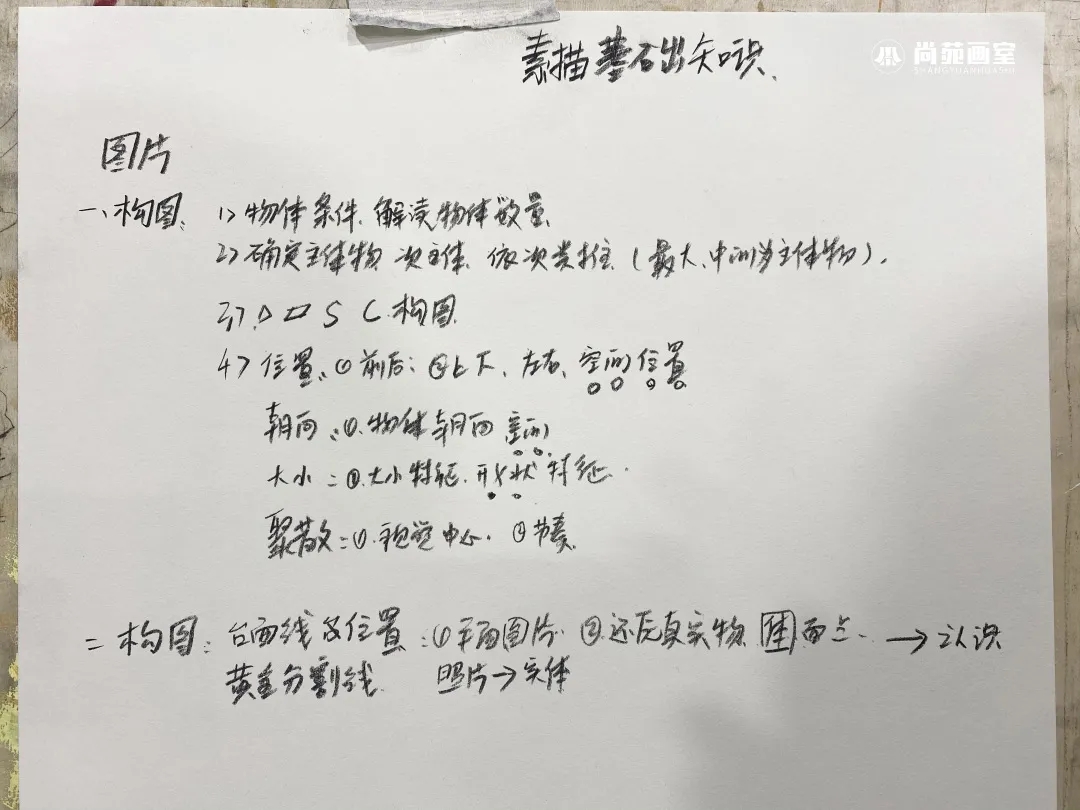 素描基础知识.
尚苑画室
SHANGYUANHUASHI
图片
一、构图: 1> 物体条件、解读物体数量
2> 确定主体物 次主体、依次类推 (最大、中间为主体物).
3> △ ▱ S C 构图
4> 位置: ①前后: ②上下、左右、空间位置
朝向: ①.物体朝向 空间
大小: ①.大小特征.形状特征.
聚散: ①.视觉中心. ②节奏
二 构图: 台面线及位置: ①平面图片. ②还原真实物 面 → 认识
黄金分割线 照片→实体